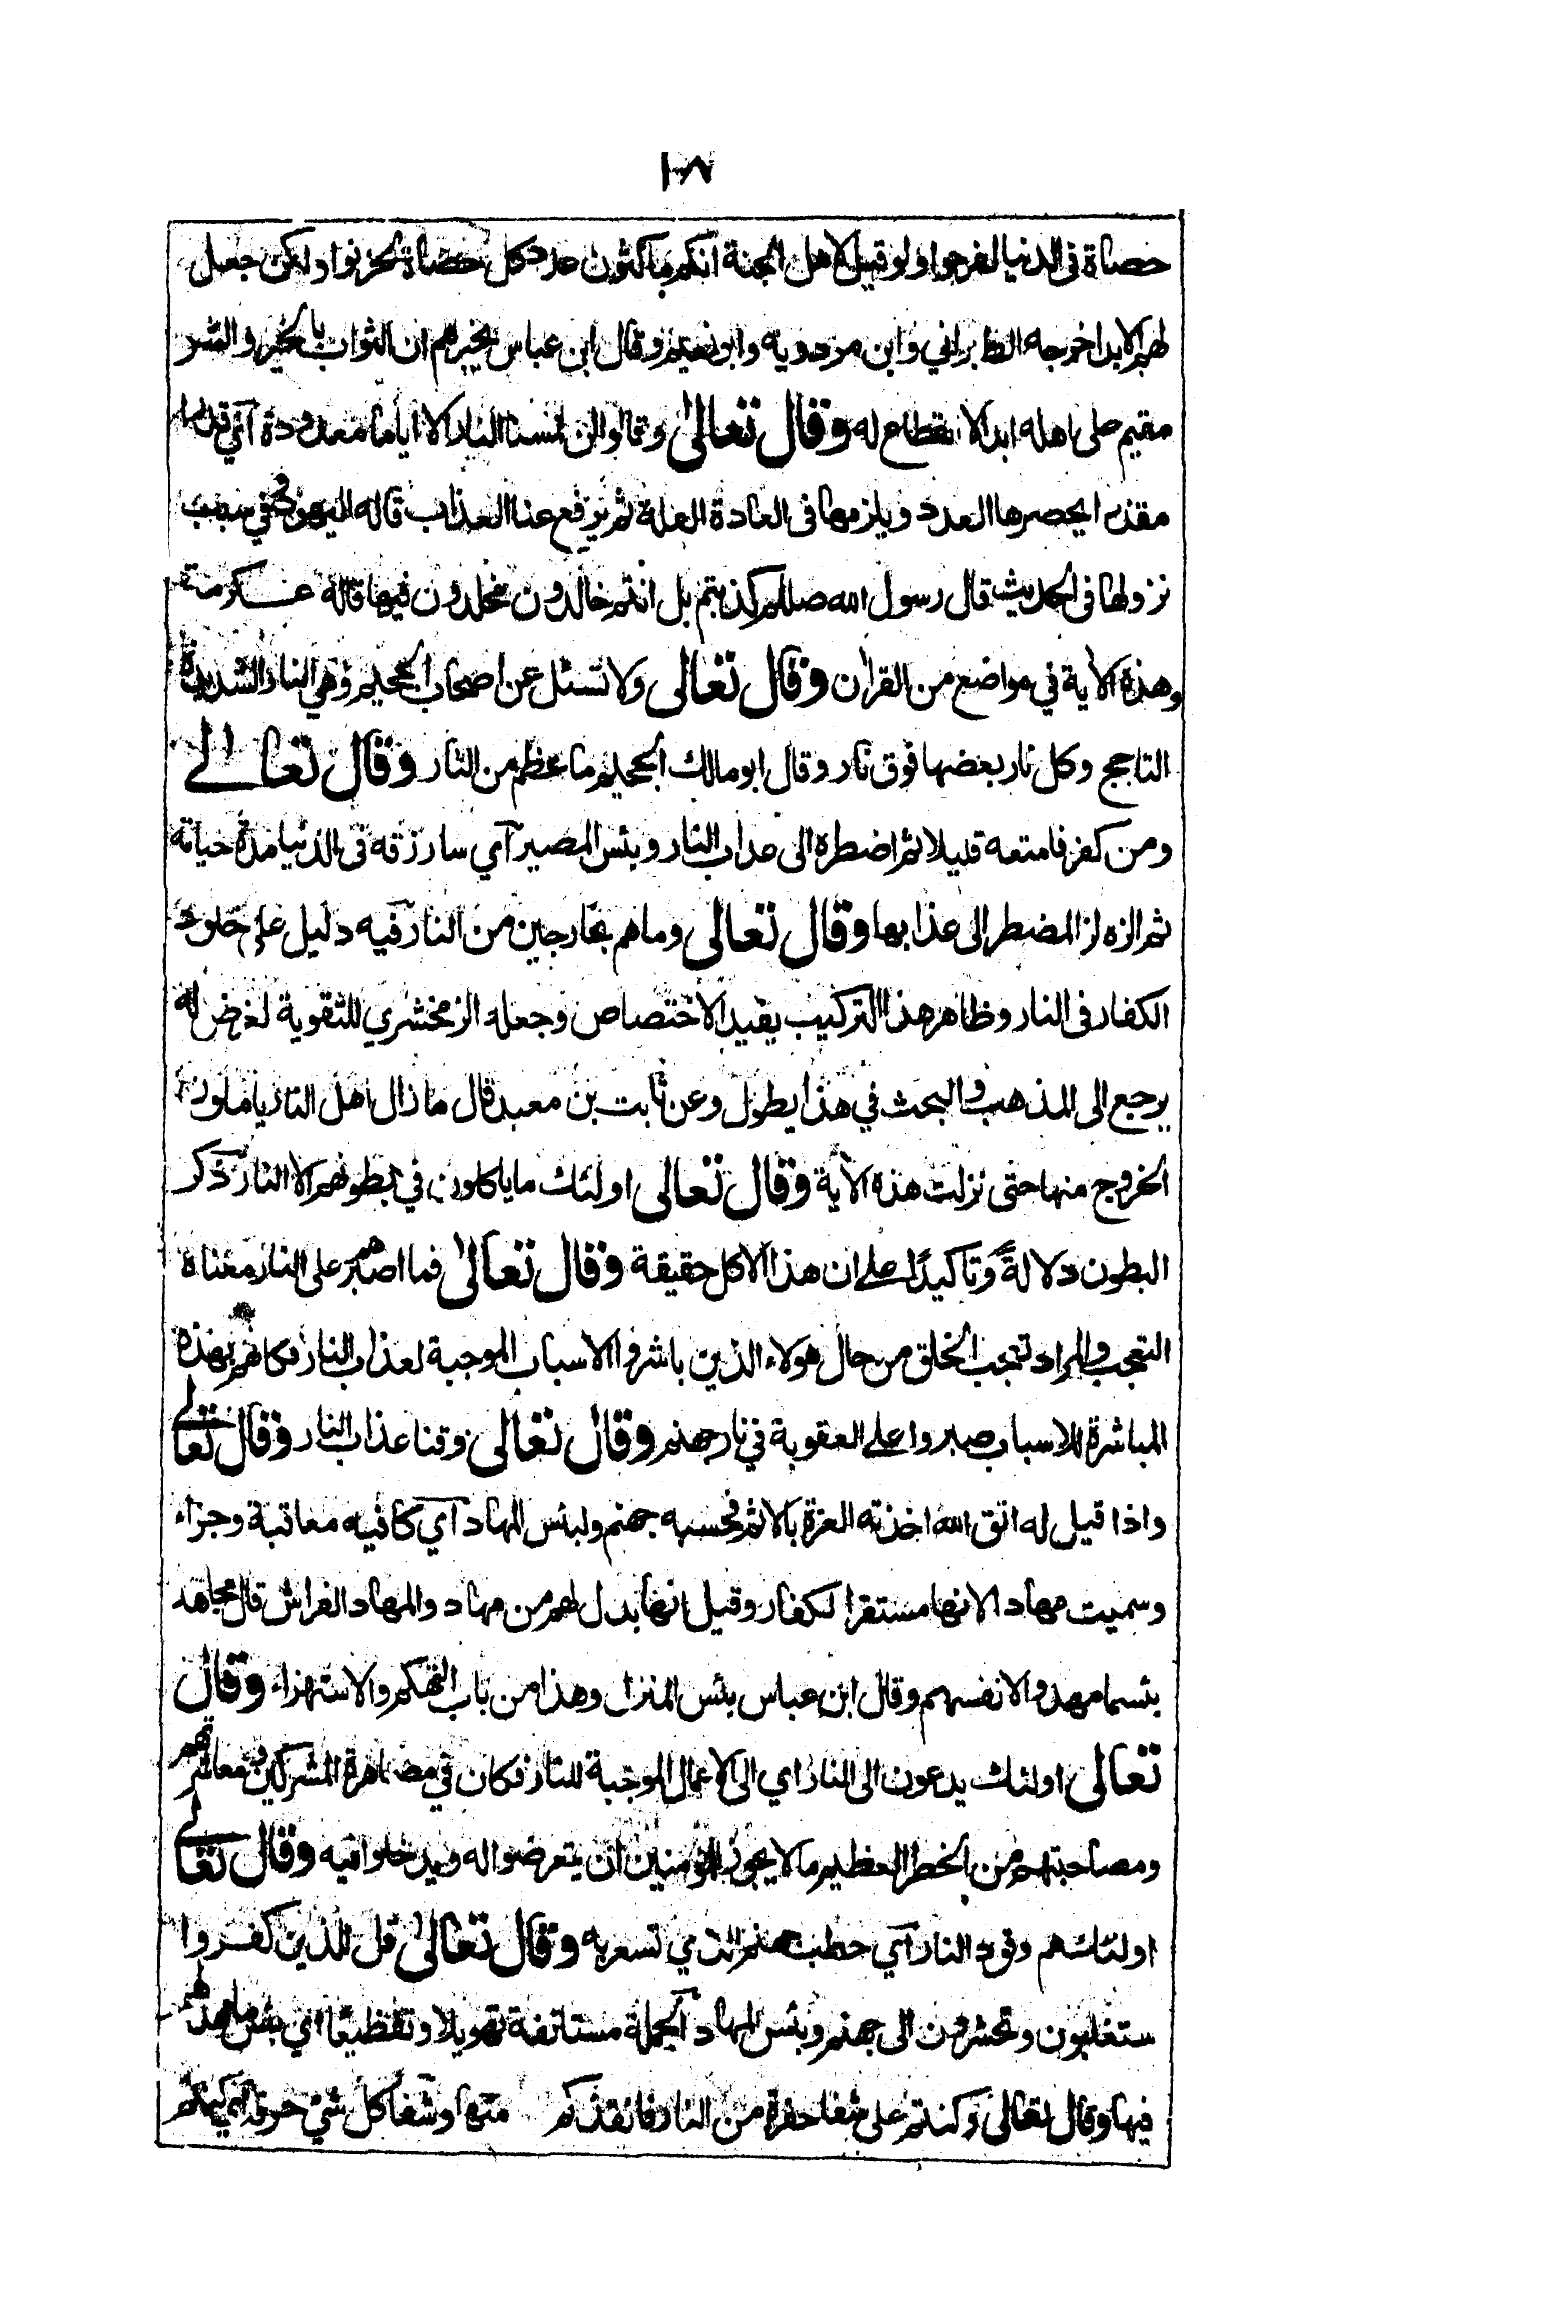 ١٠٨
حصاة فى الدنيا لفرحوا ولو قيل لاهل الجنة انكم ماكثون عدد كل حصاة لحزنوا ولكن جعل
لهم الابد اخرجه الطبراني وابن مردويه وابو نعيم وقال ابن عباس يخبرهم ان الثواب بالخير والشر
مقيم على اهله ابدا لا انقطاع له وقال تعالى وقالوا لن تمسنا النار الا اياما معدودة آي قدرا
مقدرا يحصرها العدد ويلزمها فى العادة القلة ثم يرفع عنا العذاب قاله اليهود وفي سبب
نزولها فى الحديث قال رسول الله صللم كذبتم بل انتم خالدون مخلدون فيها قاله عكرمة
وهذه الاية في مواضع من القران وقال تعالى ولا تسئل عن اصحاب الجحيم وهي النار الشديدة
التاجج وكل نار بعضها فوق نار وقال ابو مالك الجحيم ما عظم من النار وقال تعالى
ومن كفر فامتعه قليلا ثم اضطره الى عذاب النار وبئس المصير آي سارزقه فى الدنيا مدة حياته
ثم الزه لز المضطر الى عذابها وقال تعالى وما هم بخارجين من النار فيه دليل على خلود
الكفار فى النار وظاهر هذا التركيب يفيد الاختصاص وجعله الزمخشري للتقوية لغرض له
يرجع الى المذهب والبحث في هذا يطول وعن ثابت بن معبد قال ما زال اهل النار ياملون
الخروج منها حتى نزلت هذه الاية وقال تعالى اولئك ما ياكلون في بطونهم الا النار ذكر
البطون دلالةً وتاكيدًا على ان هذا الاكل حقيقة وقال تعالى فما اصبرهم على النار معناه
التعجب والمراد تعجب الخلق من حال هولاء الذين باشروا الاسباب الموجبة لعذاب النار فكانهم بهذه
المباشرة للاسباب صبروا على العقوبة في نار جهنم وقال تعالى وقنا عذاب النار وقال تعالى
واذا قيل له اتق الله اخذته العزة بالاثم فحسبه جهنم ولبئس المهاد آي كافيه معاقبة وجزاء
وسميت مهادا لانها مستقر الكفار وقيل انها بدل لهم من مهاد والمهاد الفراش قال مجاهد
بئسما مهدوا لانفسهم وقال ابن عباس بئس المنزل وهذا من باب التهكم والاستهزاء وقال
تعالى اولئك يدعون الى النار اي الى الاعمال الموجبة للنار فكان في مصاهرة المشركين ومعاشرتهم
ومصاحبتهم من الخطر العظيم ما لا يجوز للمؤمنين ان يتعرضوا له ويدخلوا فيه وقال تعالى
اولئك هم وقود النار آي حطب جهنم الذي تسعر به وقال تعالى قل للذين كفروا
ستغلبون وتحشرون الى جهنم وبئس المهاد الجملة مستانفة تهويلا وتفظيعًا اي بئس ما مهد لهم
فيها وقال تعالى وكنتم على شفا حفرة من النار فانقذكم منها وشفا كل شيئ حرفه